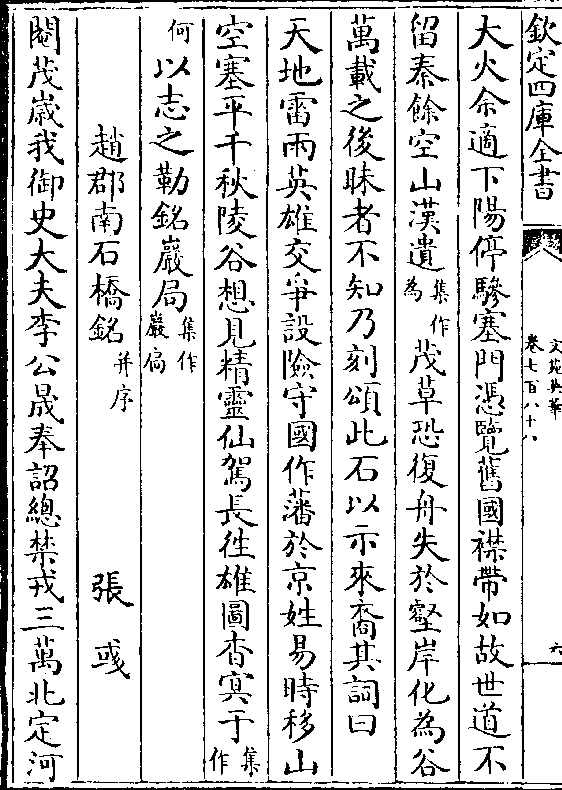 欽定四庫全書
文苑英華
卷七百八十八
六
大火余適下陽停驂塞門憑覽舊國襟帶如故世道不
留秦餘空山漢遺集作為茂草恐復舟失於壑岸化為谷
萬載之後昧者不知乃刻頌此石以示來裔其詞曰
天地雷雨英雄交爭設險守國作藩於京姓易時移山
空塞平千秋陵谷想見精靈仙駕長徃雄圖杳㝠于集作
何以志之勒銘巖局集作巖扄
趙郡南石橋銘并序
張彧
閹茂嵗我御史大夫李公晟奉詔總禁戎三萬北定河